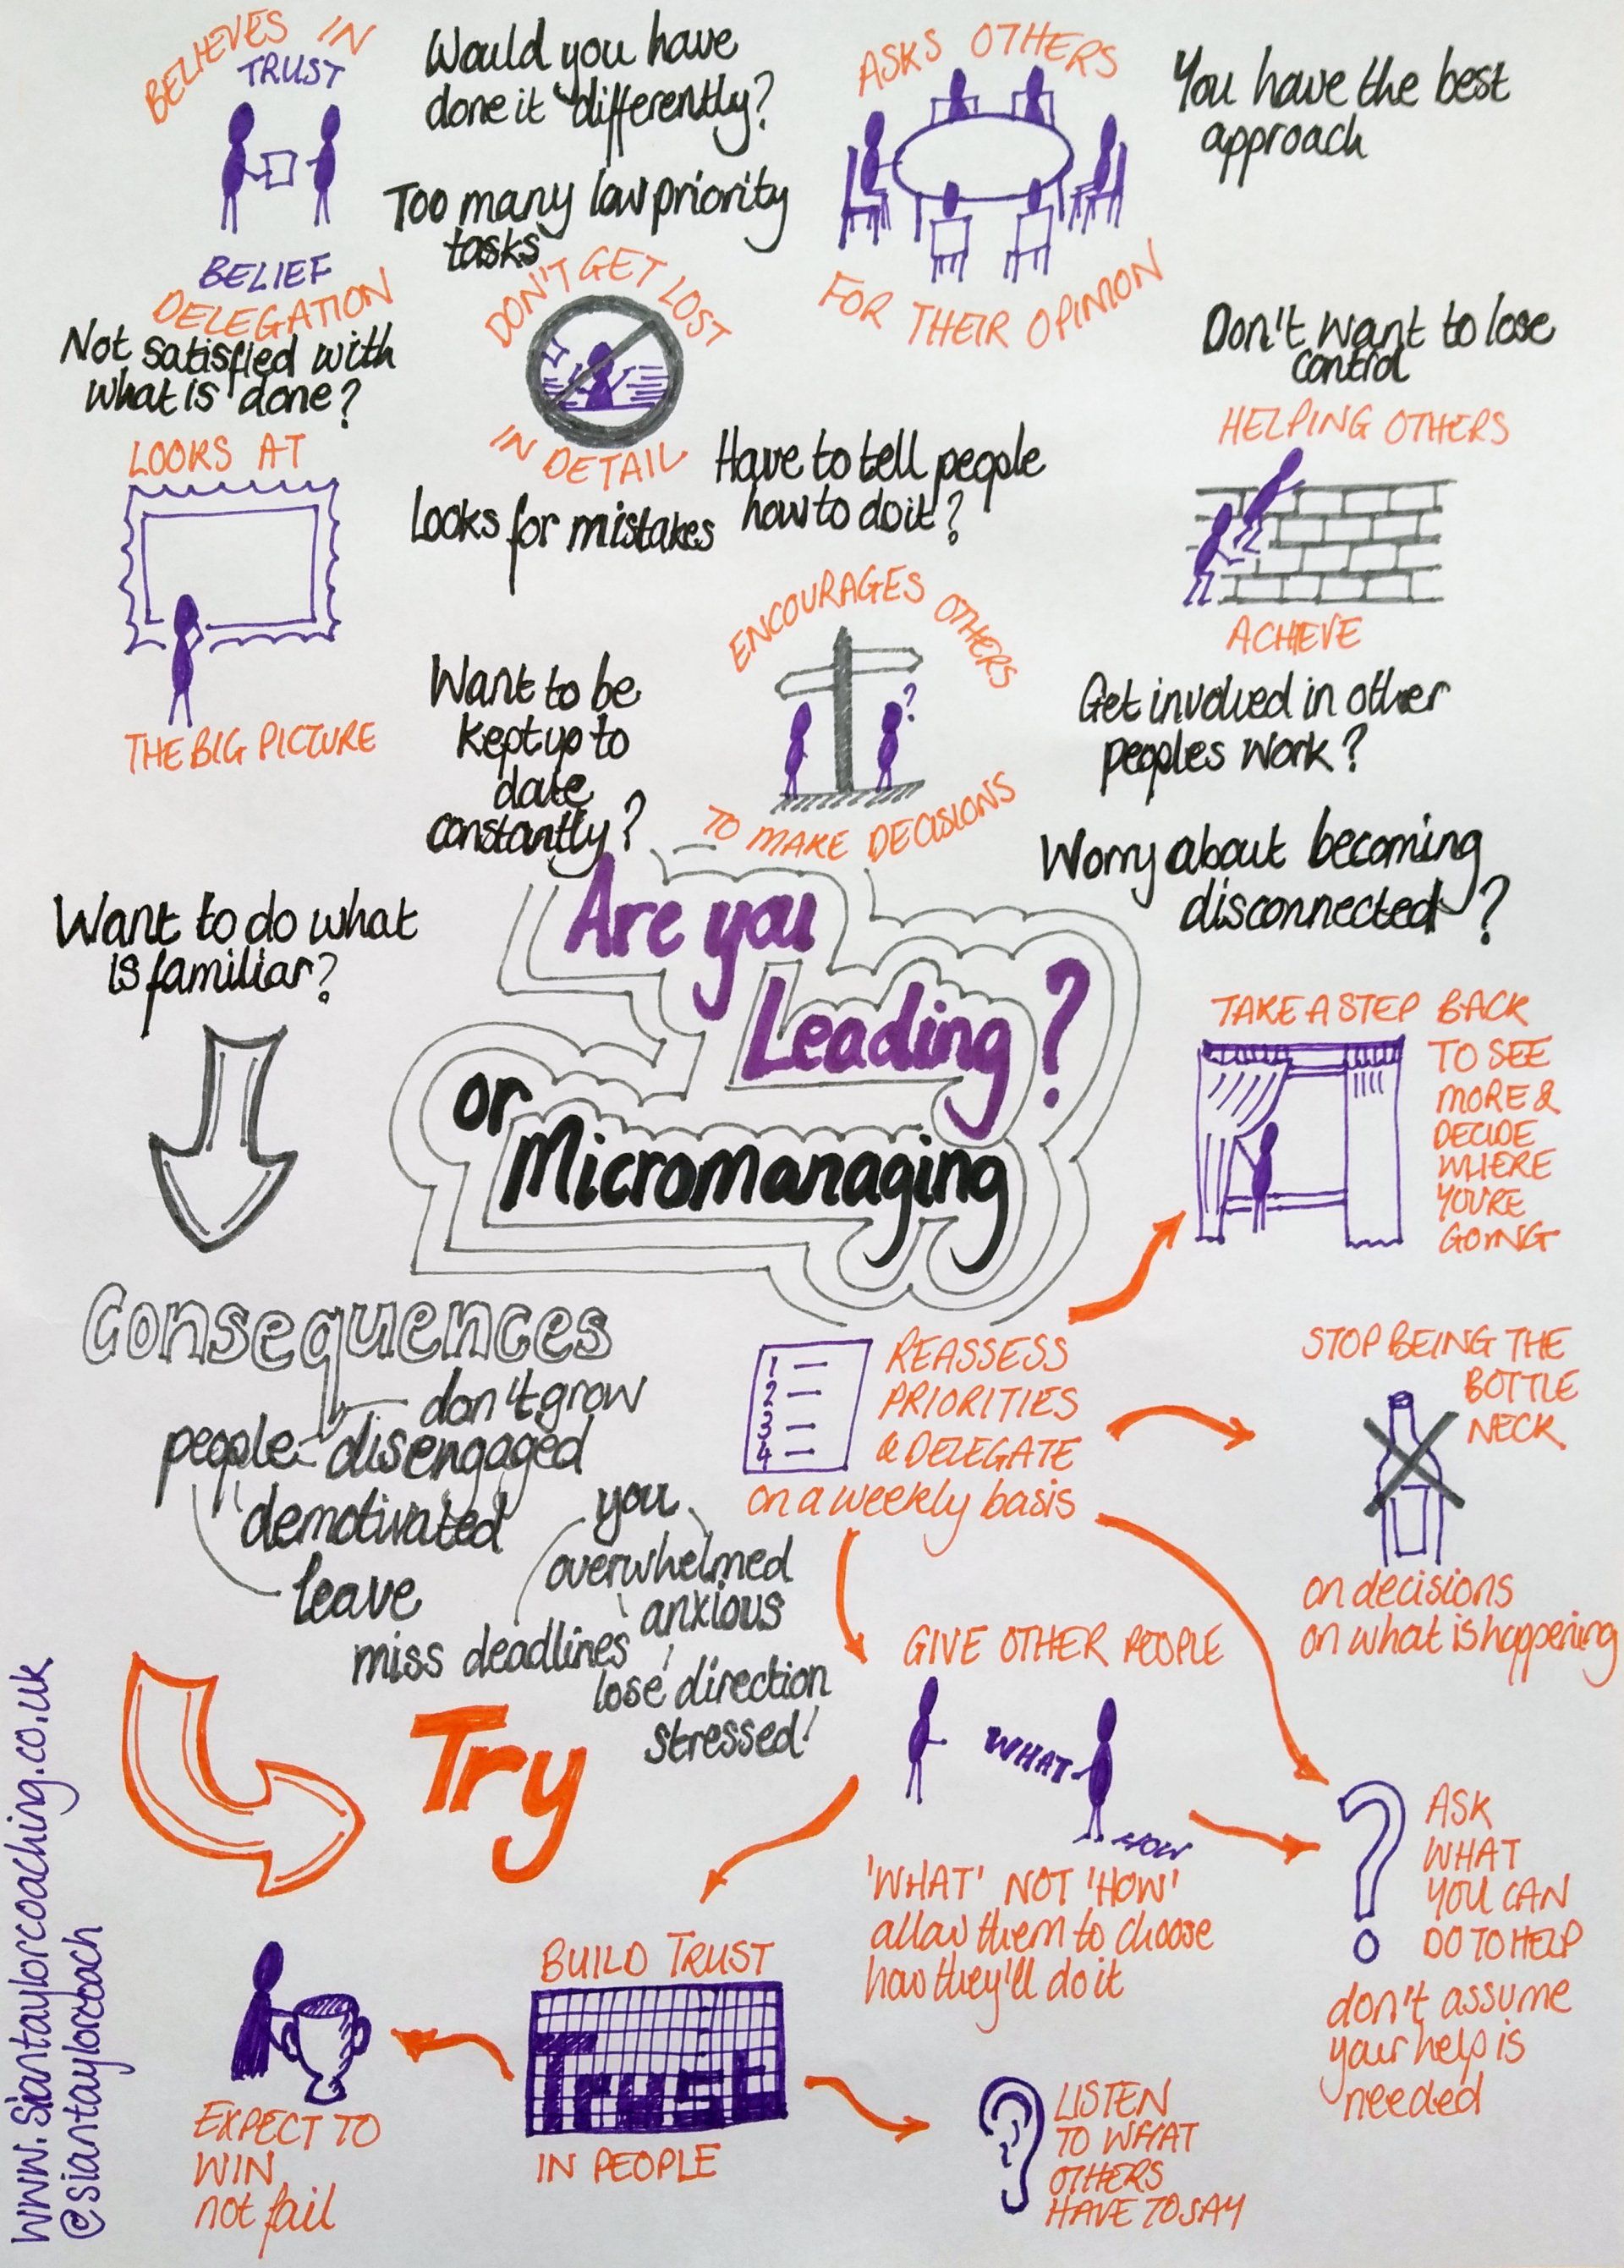 BELIEVES IN
TRUST
BELIEF
DELEGATION
Would you have
done it differently?
Too many low priority
tasks
ASKS OTHERS
FOR THEIR OPINION
You have the best
approach
Not satisfied with
what is done?
DON'T GET LOST
IN DETAIL
Don't want to lose
control
LOOKS AT
THE BIG PICTURE
Looks for mistakes
Have to tell people
how to do it?
HELPING OTHERS
ACHIEVE
Want to be
kept up to
date
constantly?
ENCOURAGES OTHERS
?
TO MAKE DECISIONS
Get involved in other
peoples work?
Worry about becoming
disconnected?
Want to do what
is familiar?
Are you
Leading?
or
Micromanaging
TAKE A STEP BACK
TO SEE
MORE &
DECIDE
WHERE
YOU'RE
GOING
Consequences
people
don't grow
disengaged
demotivated
leave
you
overwhelmed
anxious
miss deadlines
lose direction
stressed!
1
2
3
4
REASSESS
PRIORITIES
& DELEGATE
on a weekly basis
STOP BEING THE
BOTTLE
NECK
on decisions
on what is happening
Try
GIVE OTHER PEOPLE
WHAT
HOW
'WHAT' NOT 'HOW'
allow them to choose
how they'll do it
?
ASK
WHAT
YOU CAN
DO TO HELP
don't assume
your help is
needed
BUILD TRUST
Trust
IN PEOPLE
EXPECT TO
WIN
not fail
LISTEN
TO WHAT
OTHERS
HAVE TO SAY
www.Siantaylorcoaching.co.uk
@siantaylorcoach